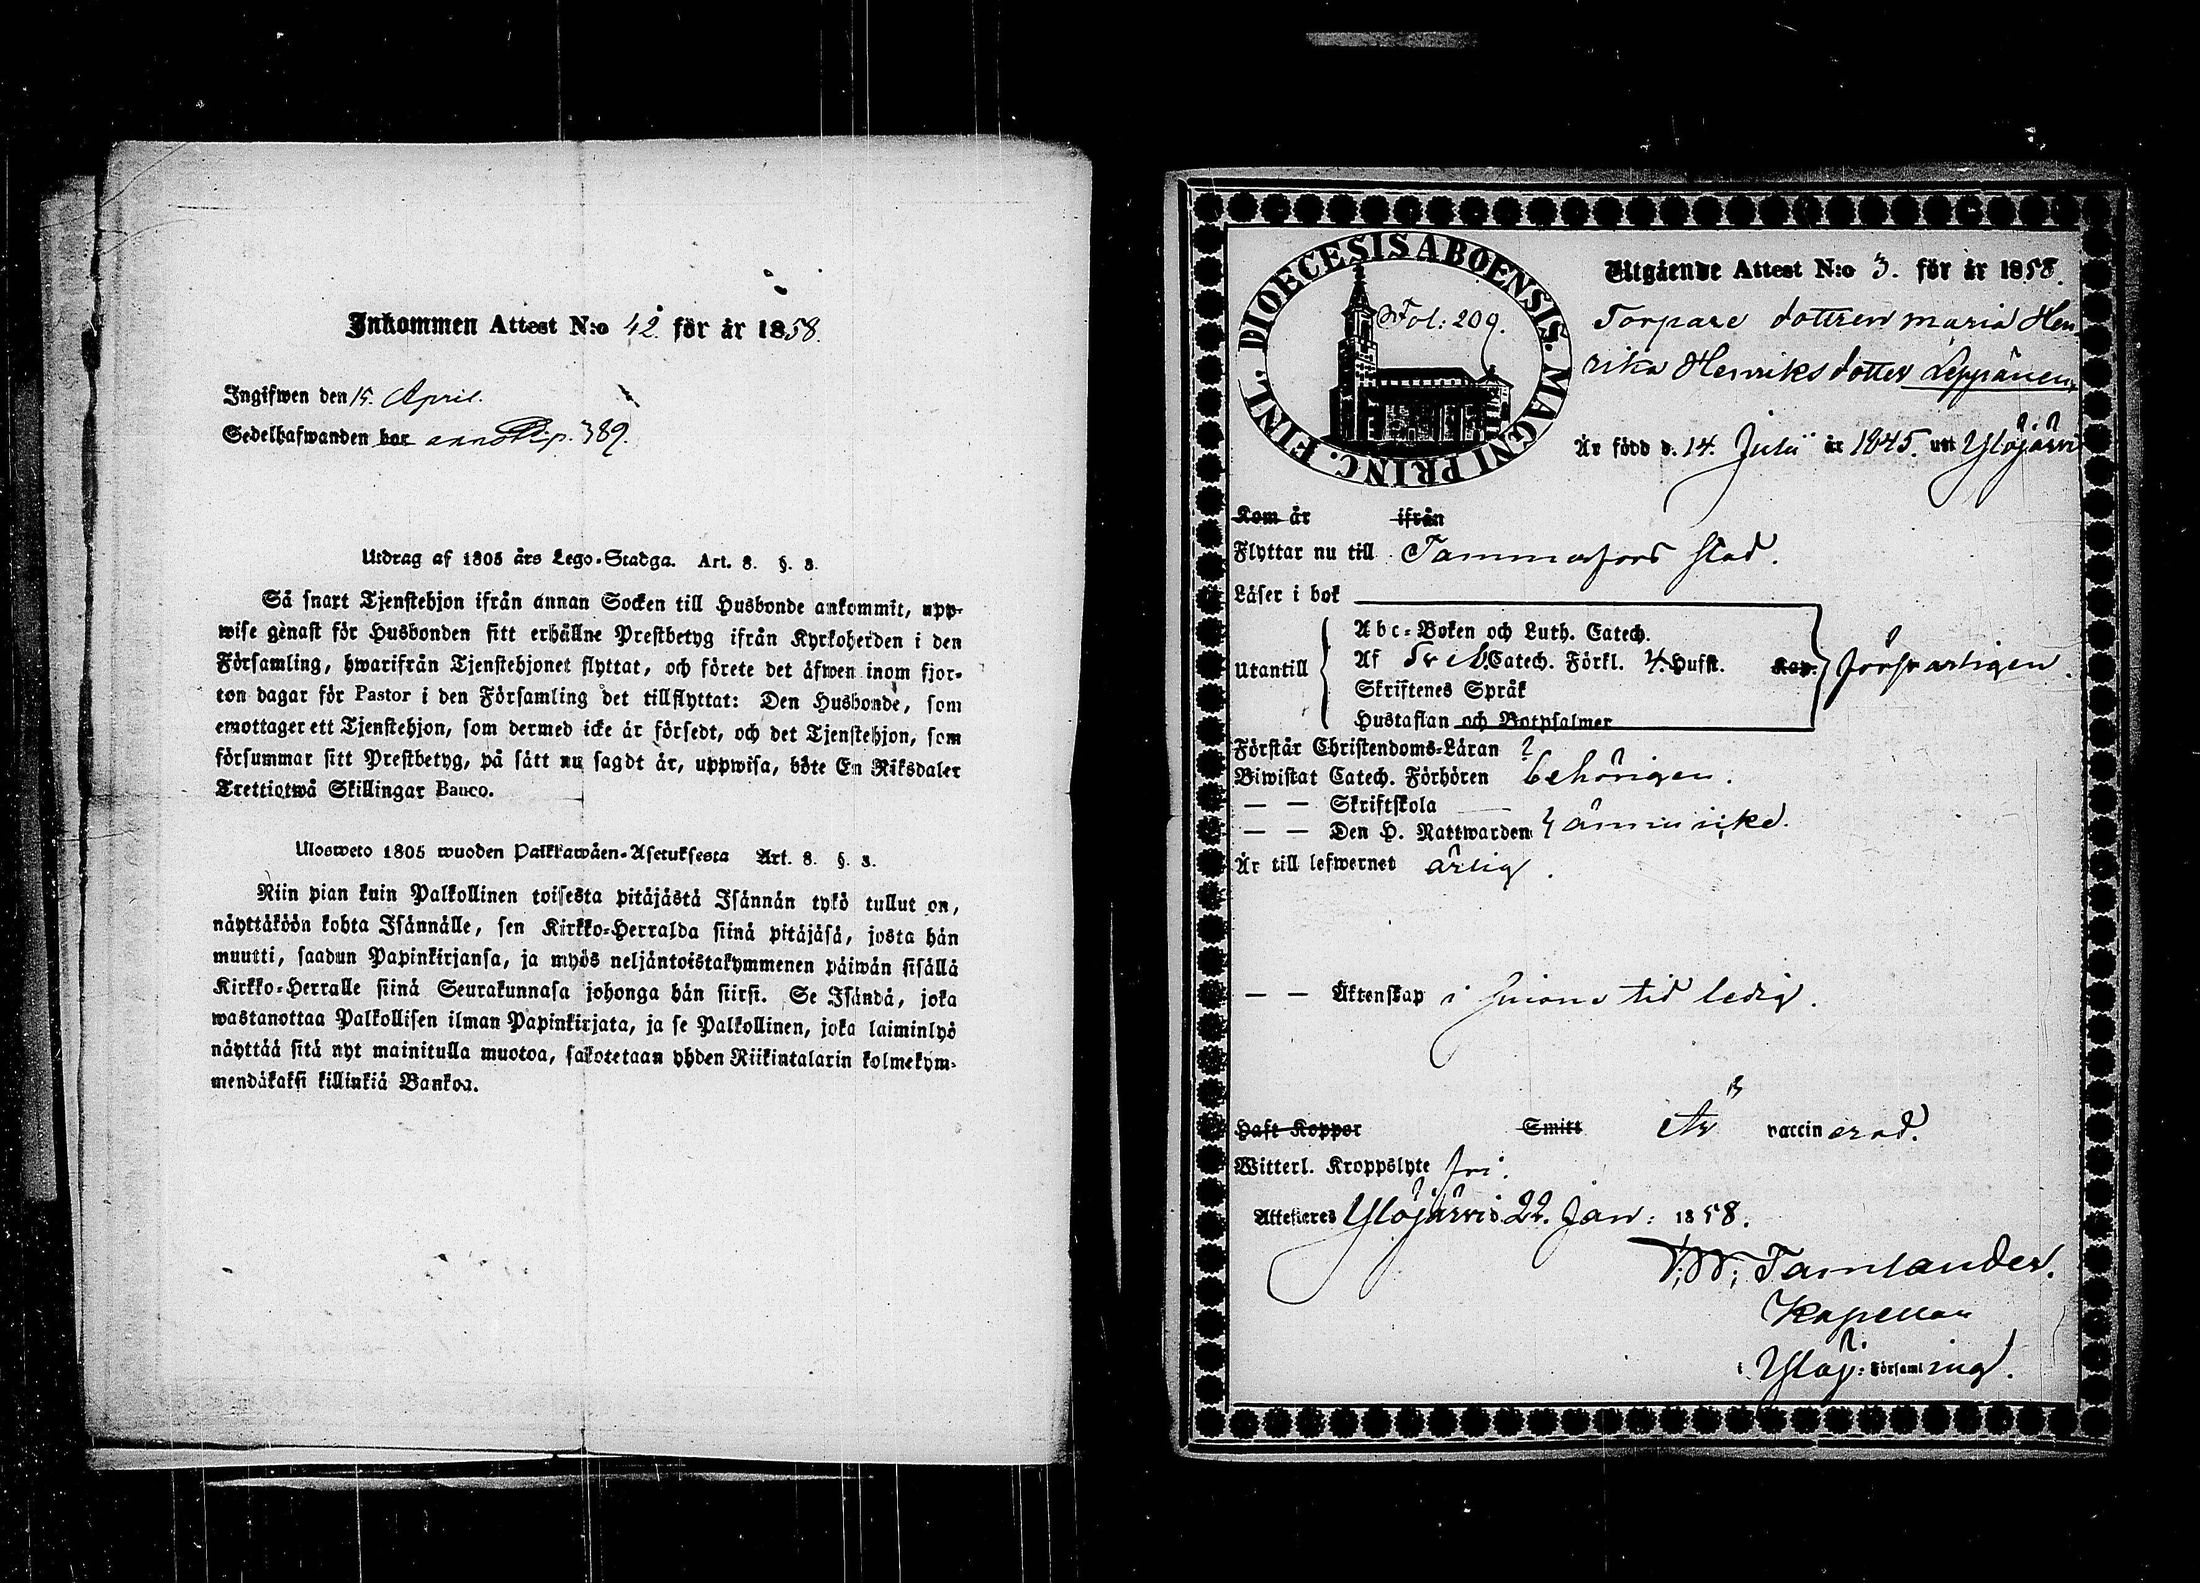 Inkommen Attest N:o 42 för år 1858.
Ingifwen den 15. April.
Sedelhafwanden bor annot. p. 389.
Utdrag af 1805 års Lego-Stadga. Art. 8. §. 3.
Så snart Tjenstehjon ifrån annan Socken till Husbonde ankommit, upp-
wise genast för Husbonden sitt erhållne Prestbetyg ifrån Kyrkoherden i den
Församling, hwarifrån Tjenstehjonet flyttat, och förete det äfwen inom fjor-
ton dagar för Pastor i den Församling det tillflyttat: Den Husbonde, som
emottager ett Tjenstehjon, som dermed icke är försedt, och det Tjenstehjon, som
försummar sitt Prestbetyg, på sätt nu sagdt är, uppwisa, böte En Riksdaler
Trettiotwå Skillingar Banco.
Ulosweto 1805 wuoden Palkkawäen-Asetuksesta Art. 8. §. 3.
Niin pian kuin Palkollinen toisesta pitäjästä Isännän tykö tullut on,
näyttäköön kohta Isännälle, sen Kirkko-Herralda siinä pitäjäsä, josta hän
muutti, saadun Papinkirjansa, ja myös neljäntoistakymmenen päiwän sisällä
Kirkko-Herralle siinä Seurakunnasa johonga hän siirsi. Se Isändä, joka
wastanottaa Palkollisen ilman Papinkirjata, ja se Palkollinen, joka laiminlyö
näyttää sitä nyt mainitulla muotoa, sakotetaan yhden Riikintalarin kolmekym-
mendäkaksi killinkiä Bankoa.
DIOECESIS ABOENSIS. MAGNI PRINC. FINL.
Fol: 209.
Utgående Attest N:o 3. för år 1858.
Torpare dottren Maria Hen-
rika Henriksdotter Leppänen,
Är född d. 14. Julii år 1845. uti Ylöjärvi
Kom år ifrån
Flyttar nu till Tammerfors stad.
Läser i bok
Utantill
Abc-Boken och Luth. Catech.
Af Catech. Förkl. 4. Hufst. Kap.
Skriftenes Språk
Hustaflan och Botpsalmer
försvarligen.
Förstår Christendoms-Läran
Biwistat Catech. Förhören behörigen.
— — Skriftskola
— — Den H. Nattwarden ännu icke.
Är till lefwernet ärlig.
— — Äktenskap i sinom tid ledig.
Haft Koppor Smitt Är vaccinerad.
Witterl. Kroppslyte fri.
Attesteres Ylöjärvi d. 22. Jan: 1858.
Tamlander.
Kapellan
i Ylöj: Församling.